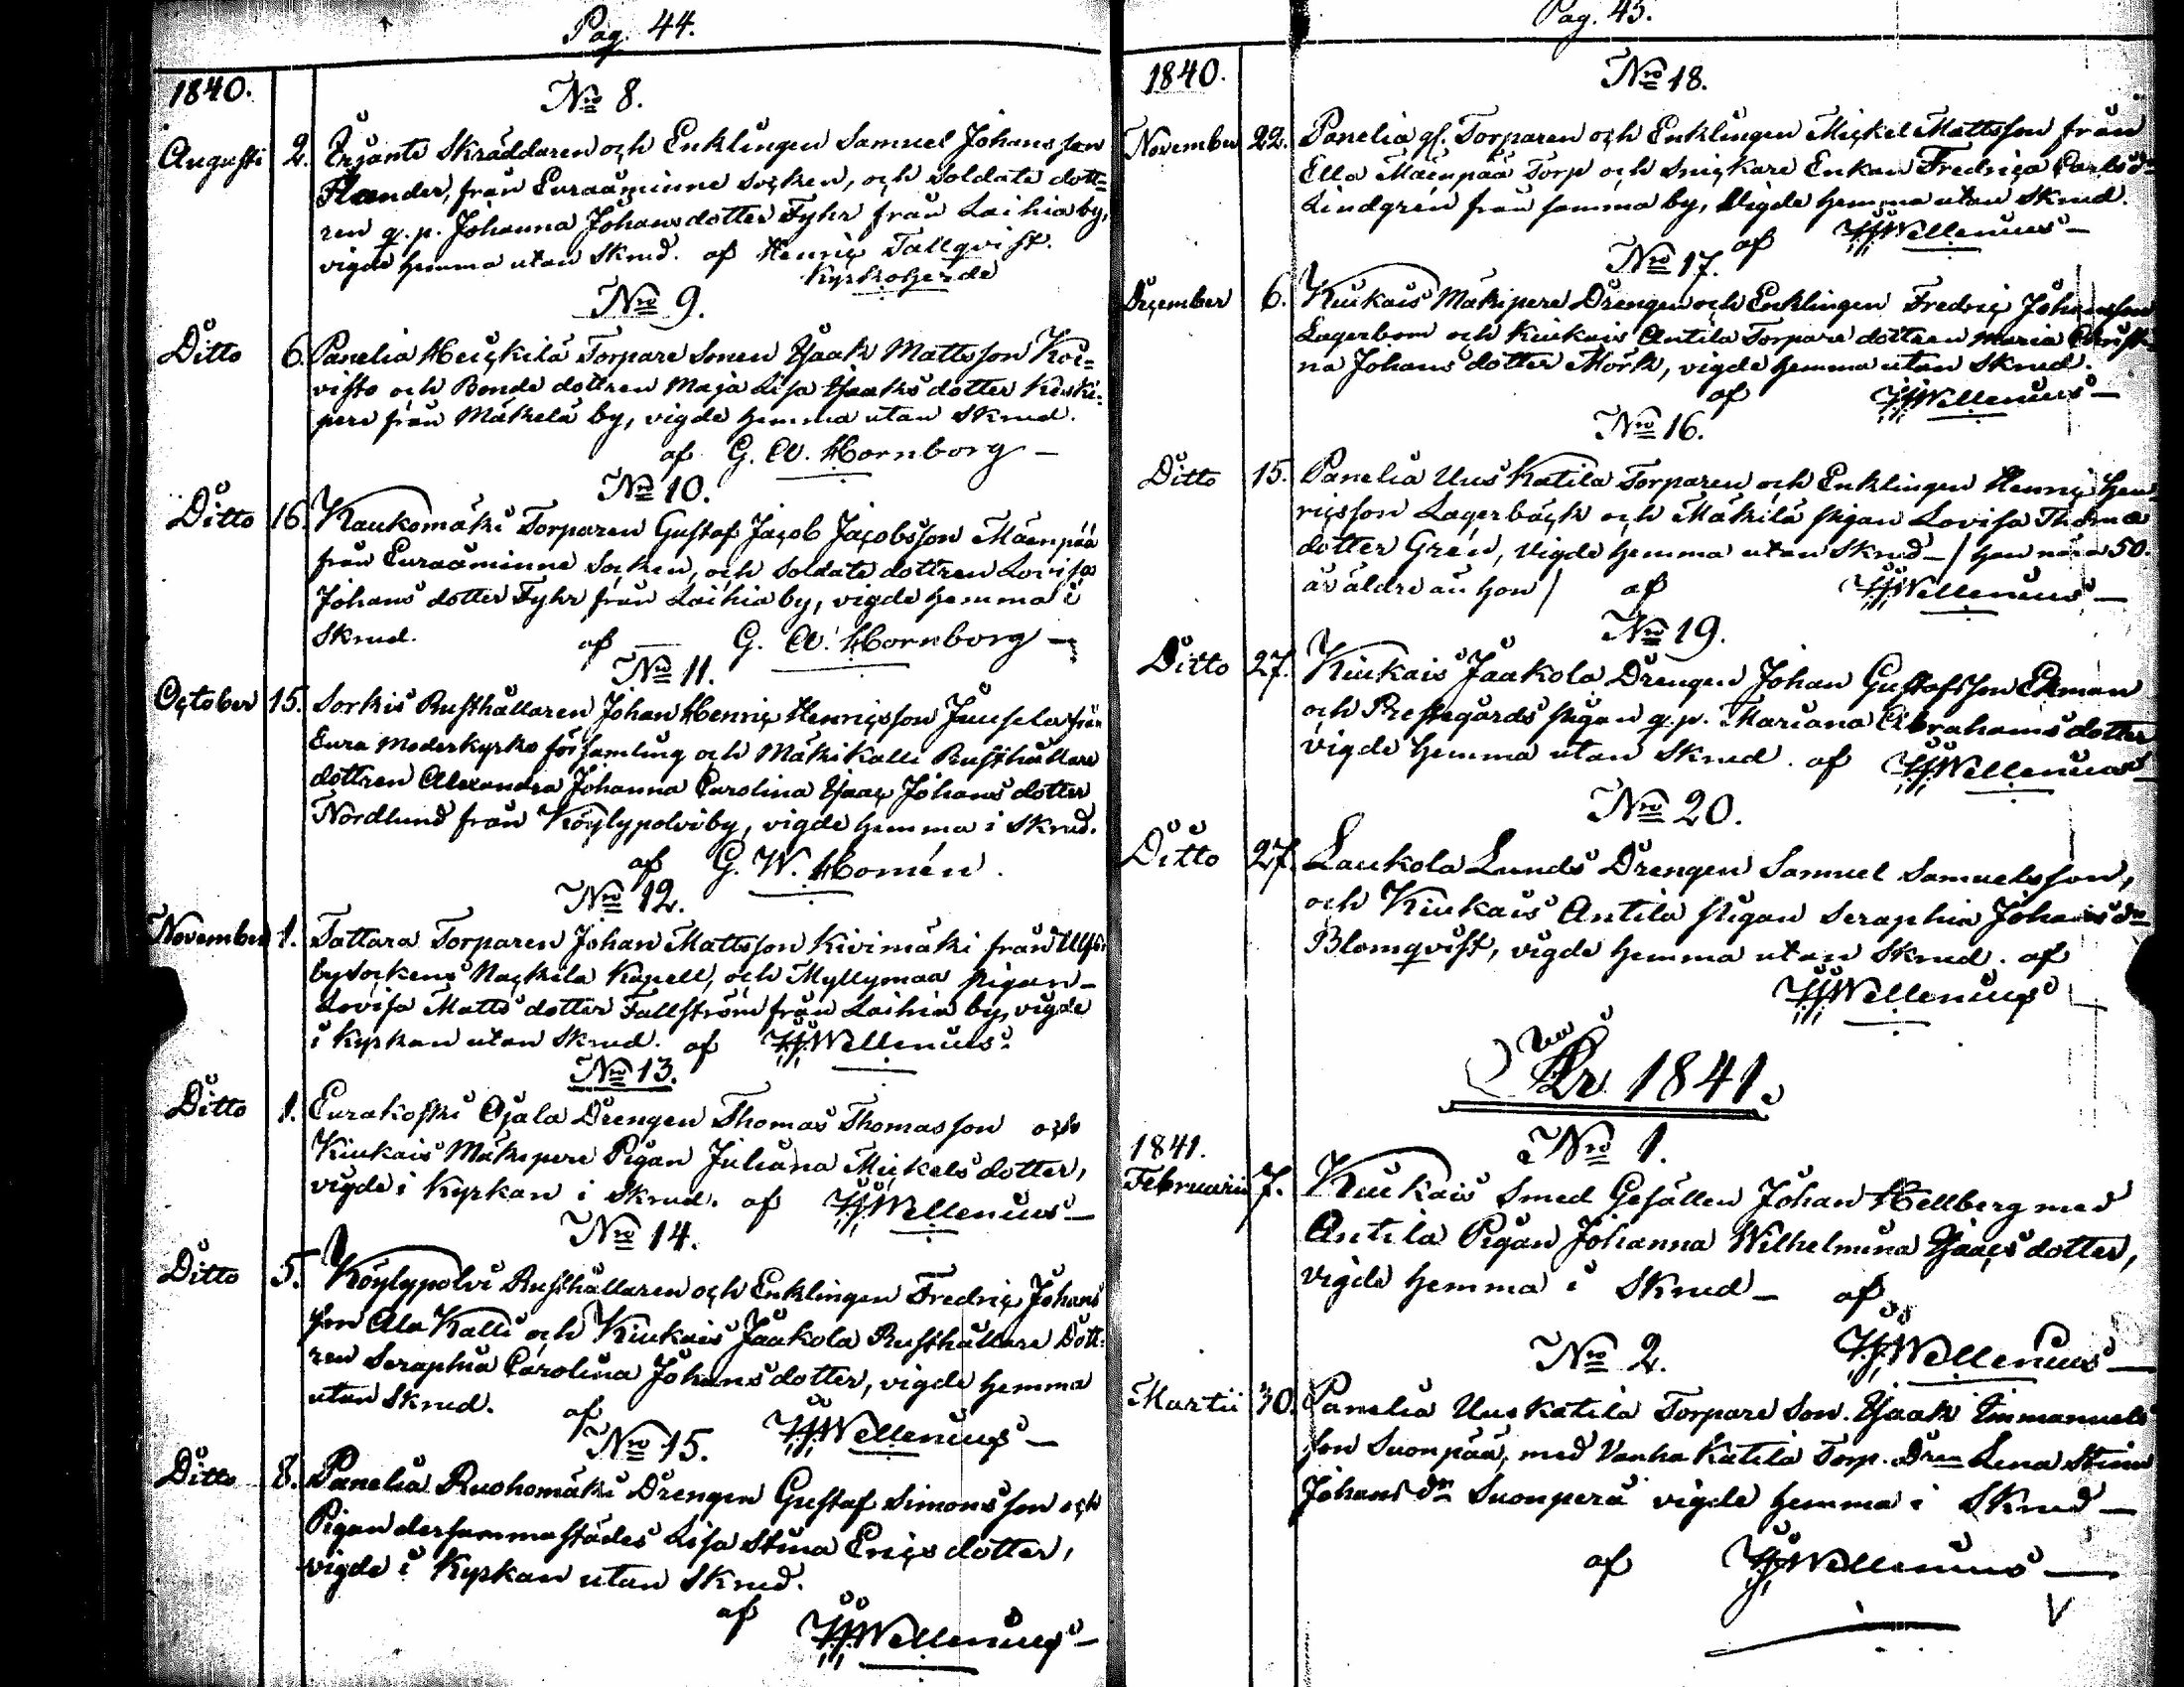 Pag. 44.
1840.
No 8.
Augusti 2. Skräddaren och Enklingen Samuel Johansson
Flander, från Euraåminne Socken, och Soldate dott=
ren q. p. Johanna Johans dotter Fyhr från Laihia by,
vigde hemma utan Skrud. af Henric Tallqvist.
Kyrkoherde
No 9.
Ditto 6. Panelia Heickilä Torpare Sonen Isaak Mattsson Koi=
visto och Bonde dottren Maja Lisa Isaaks dotter Keski=
pere från Mäkelä by, vigde hemma utan Skrud.
af G. A. Hornborg
No 10.
Ditto 16. Kaukomäki Torparen Gustaf Jacob Jacobsson Mäenpää
från Euraåminne Socken, och Soldate dottren Lovisa
Johans dotter Fyhr från Laihia by, vigde hemma i
Skrud. af G. A. Hornborg
No 11.
October 15. Sorkis Rusthållaren Johan Henric Henricsson Juusela från
Eura Moderkyrko församling och Mäkikalli Rusthållare
dottren Alexandra Johanna Carolina Isaac Johans dotter
Nordlund från Köylypolvi by, vigde hemma i Skrud.
af G. W. Homén.
No 12.
November 1. Tattara Torparen Johan Mattsson Kivimäki från Ulfs=
by Sockens Nackila Kapell, och Myllymaa Pigan
Lovisa Matts dotter Fallström från Laihia by, vigde
i Kyrkan utan Skrud. af Wellenius.
No 13.
Ditto 1. Eurakoski Ojala Drengen Thomas Thomasson och
Kiukais Mäkipere Pigan Juliana Mickels dotter,
vigde i Kyrkan i Skrud. af Wellenius
No 14.
Ditto 5. Köylypolvi Rusthållaren och Enklingen Fredric Johans
son Ala Kalli och Kiukais Jaakola Rusthållare Dott=
ren Seraphia Carolina Johans dotter, vigde hemma
utan Skrud. af Wellenius
No 15.
Ditto 8. Panelia Ruohomäki Drengen Gustaf Simonsson och
Pigan dersammastädes Lisa Stina Erics dotter,
vigde i Kyrkan utan Skrud.
af Wellenius
Pag. 45.
1840.
No 18.
November 22. Panelia gl. Torparen och Enklingen Mickel Mattsson från
Ella Mäenpää Torp och Snickare Enkan Fredrica Carls dr
Lindgrén från samma by, Vigde hemma utan Skrud.
af Wellenius
No 17.
December 6. Kiukais Mäkipere Drengen och Enklingen Fredric Johansson
Lagerbom och Kiukais Antila Torpare dottren Maria Christi=
na Johans dotter Mörk, vigde hemma utan Skrud.
af Wellenius
No 16.
Ditto 15. Panelia Uus Katila Torparen och Enklingen Henric Hen=
ricsson Lagerbäck och Mäkilä Pigan Lovisa Thoma
dotter Grén, Vigde hemma utan Skrud / han nära 50.
år äldre än hon / af Wellenius
No 19.
Ditto 27. Kiukais Jaakola Drengen Johan Gustafsson Ekman
och Prestegårds Pigan q. p. Mariana Abrahams dotter
vigde hemma utan Skrud. af Wellenius
No 20.
Ditto 27. Laukola Lunds Drengen Samuel Samuelsson,
och Kiukais Antila Pigan Seraphia Johans dr
Blomqvist, vigde hemma utan Skrud. af
Wellenius
År 1841.
No 1.
1841.
Februarii 7. Kiukais Smed Gesällen Johan Hellberg med
Antila Pigan Johanna Wilhelmina Isaacs dotter,
vigde hemma i Skrud af
Wellenius
No 2.
Martii 30. Panelia Uus Katila Torpare Son. Isaak Immanuels
son Suonpää, med Vanha Katila Torp. Dren Lena Stina
Johans dr Suonperä vigde hemma i Skrud
af Wellenius